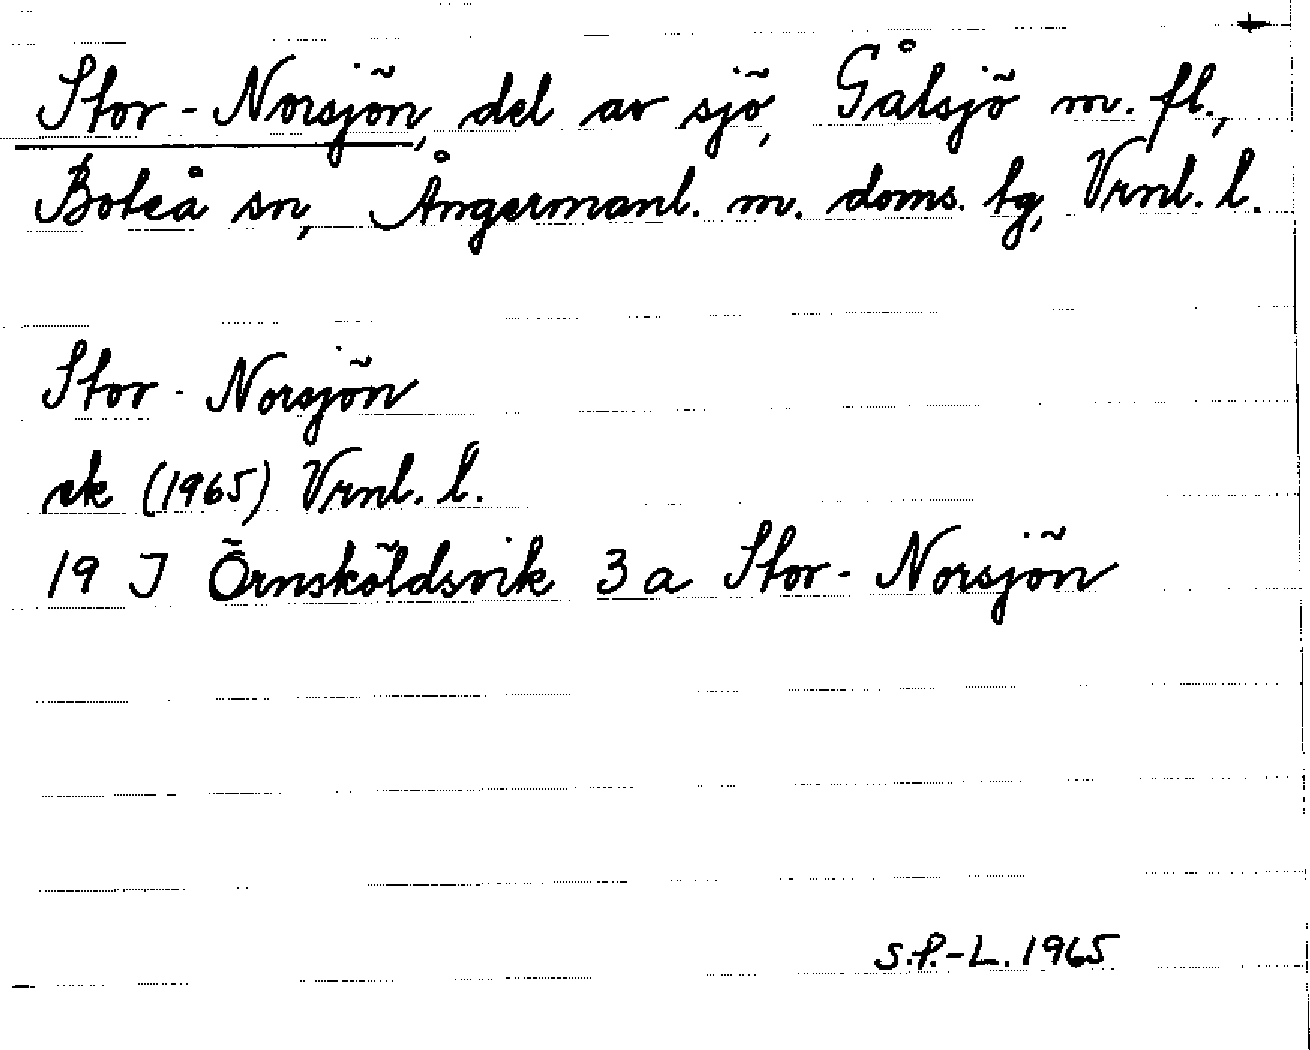 Stor-Norsjön, del av sjö, Gålsjö m.fl.,
Boteå sn, Ångermanl. m. doms. tg, Vrnl. l.
Stor-Norsjön
ek (1965) Vrnl. l.
19 J Örnsköldsvik 3a Stor-Norsjön
S.P.-L. 1965